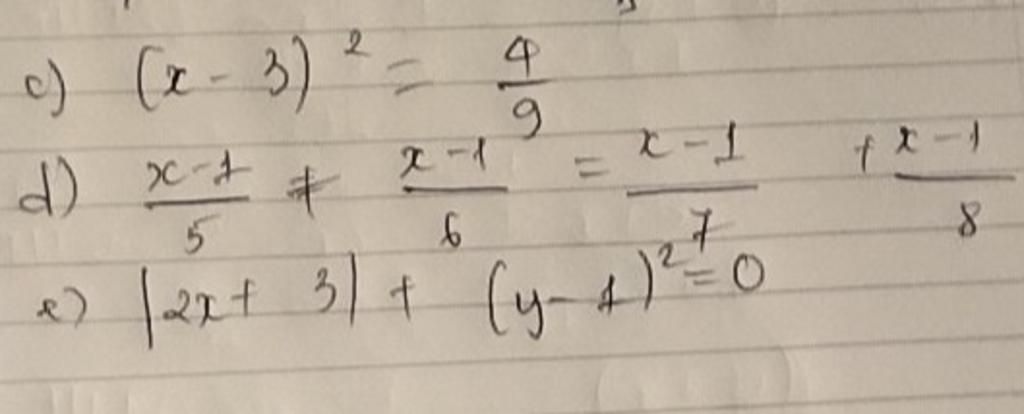 c) (x - 3)² = 4/9
d) x-1/5 + x-1/6 = x-1/7 + x-1/8
e) |2x + 3| + (y - 1)² = 0